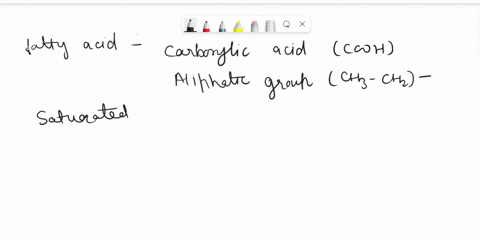 fatty acid - Carboxylic acid (COOH)
Aliphatic group (CH3-CH2)-
Saturated